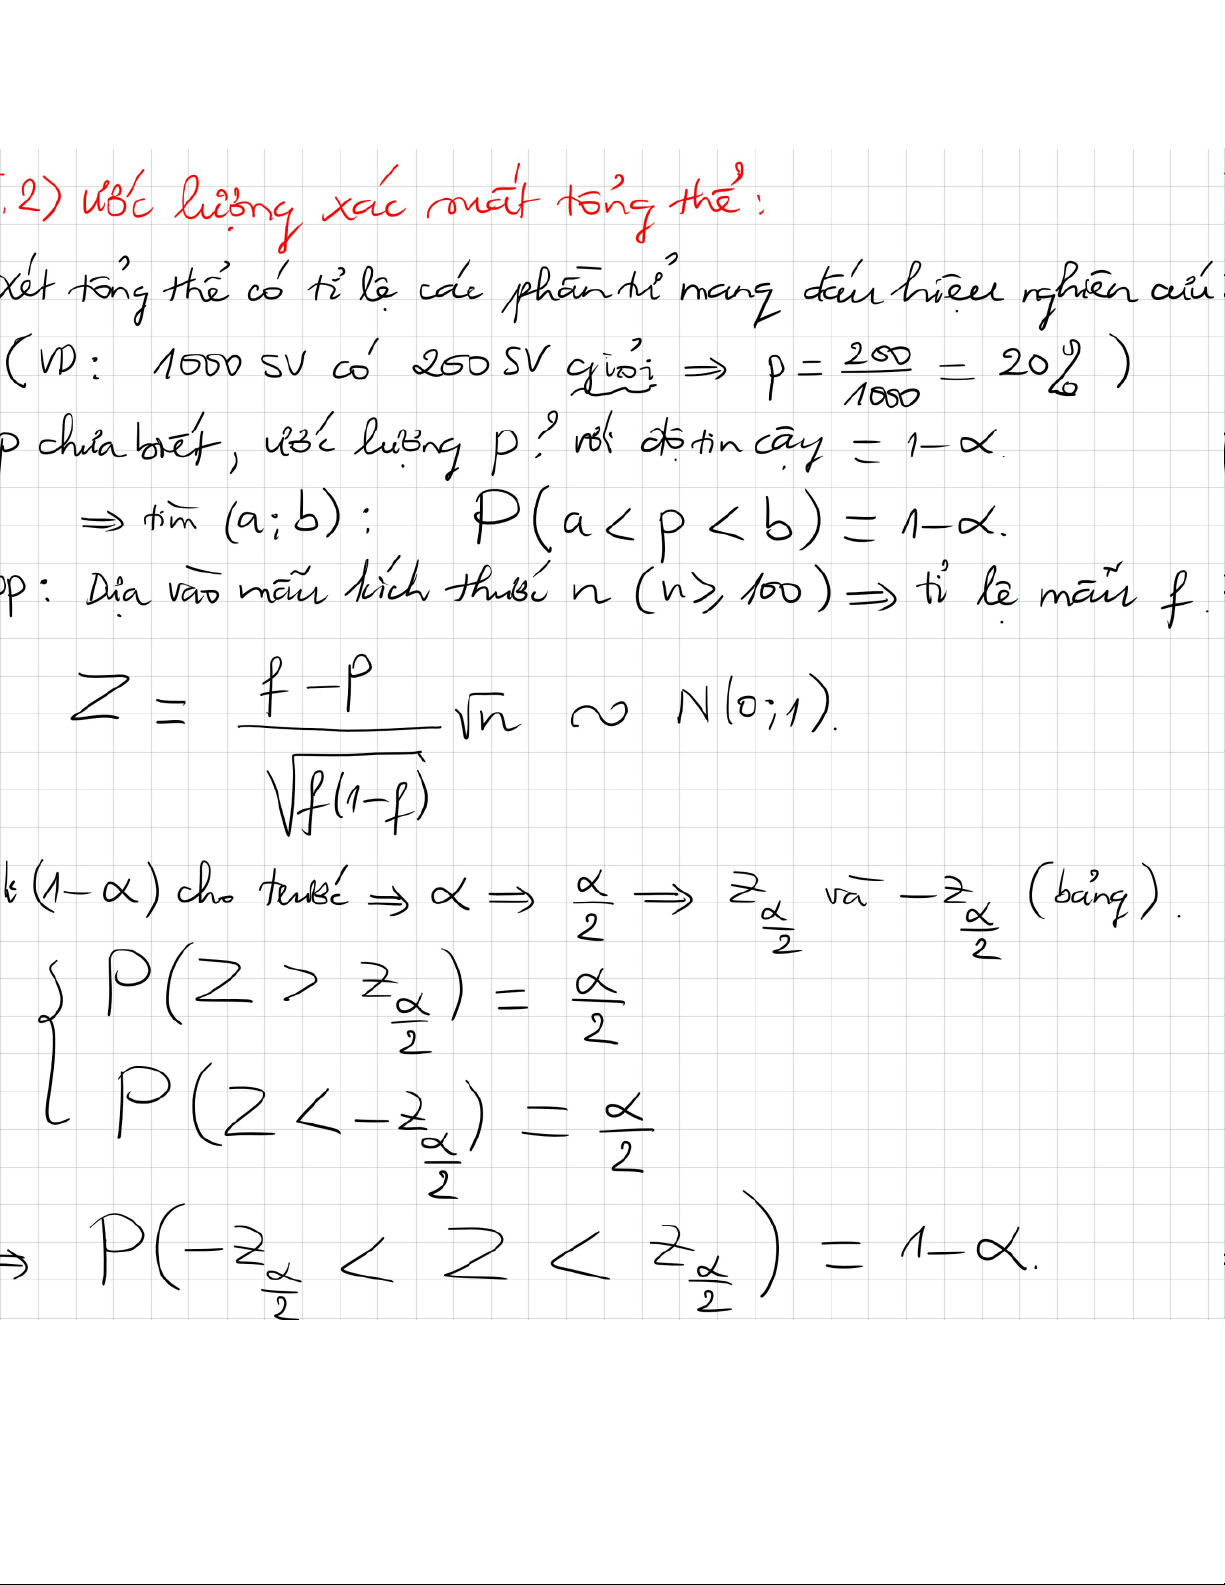 .2) ước lượng xác suất tổng thể:
xét tổng thể có tỉ lệ các phần tử mang dấu hiệu nghiên cứu
(VD: 1000 SV có 200 SV giỏi ⇒ p = 200/1000 = 20%)
p chưa biết, ước lượng p? với độ tin cậy = 1-α.
⇒ tìm (a;b): P(a < p < b) = 1-α.
pp: Dựa vào mẫu kích thước n (n ≥ 100) ⇒ tỉ lệ mẫu f.
Z = (f-p)/√(f(1-f)) √n ~ N(0;1).
k (1-α) cho trước ⇒ α ⇒ α/2 ⇒ z_{α/2} và -z_{α/2} (bảng).
{ P(Z > z_{α/2}) = α/2
P(Z < -z_{α/2}) = α/2
⇒ P(-z_{α/2} < Z < z_{α/2}) = 1-α.